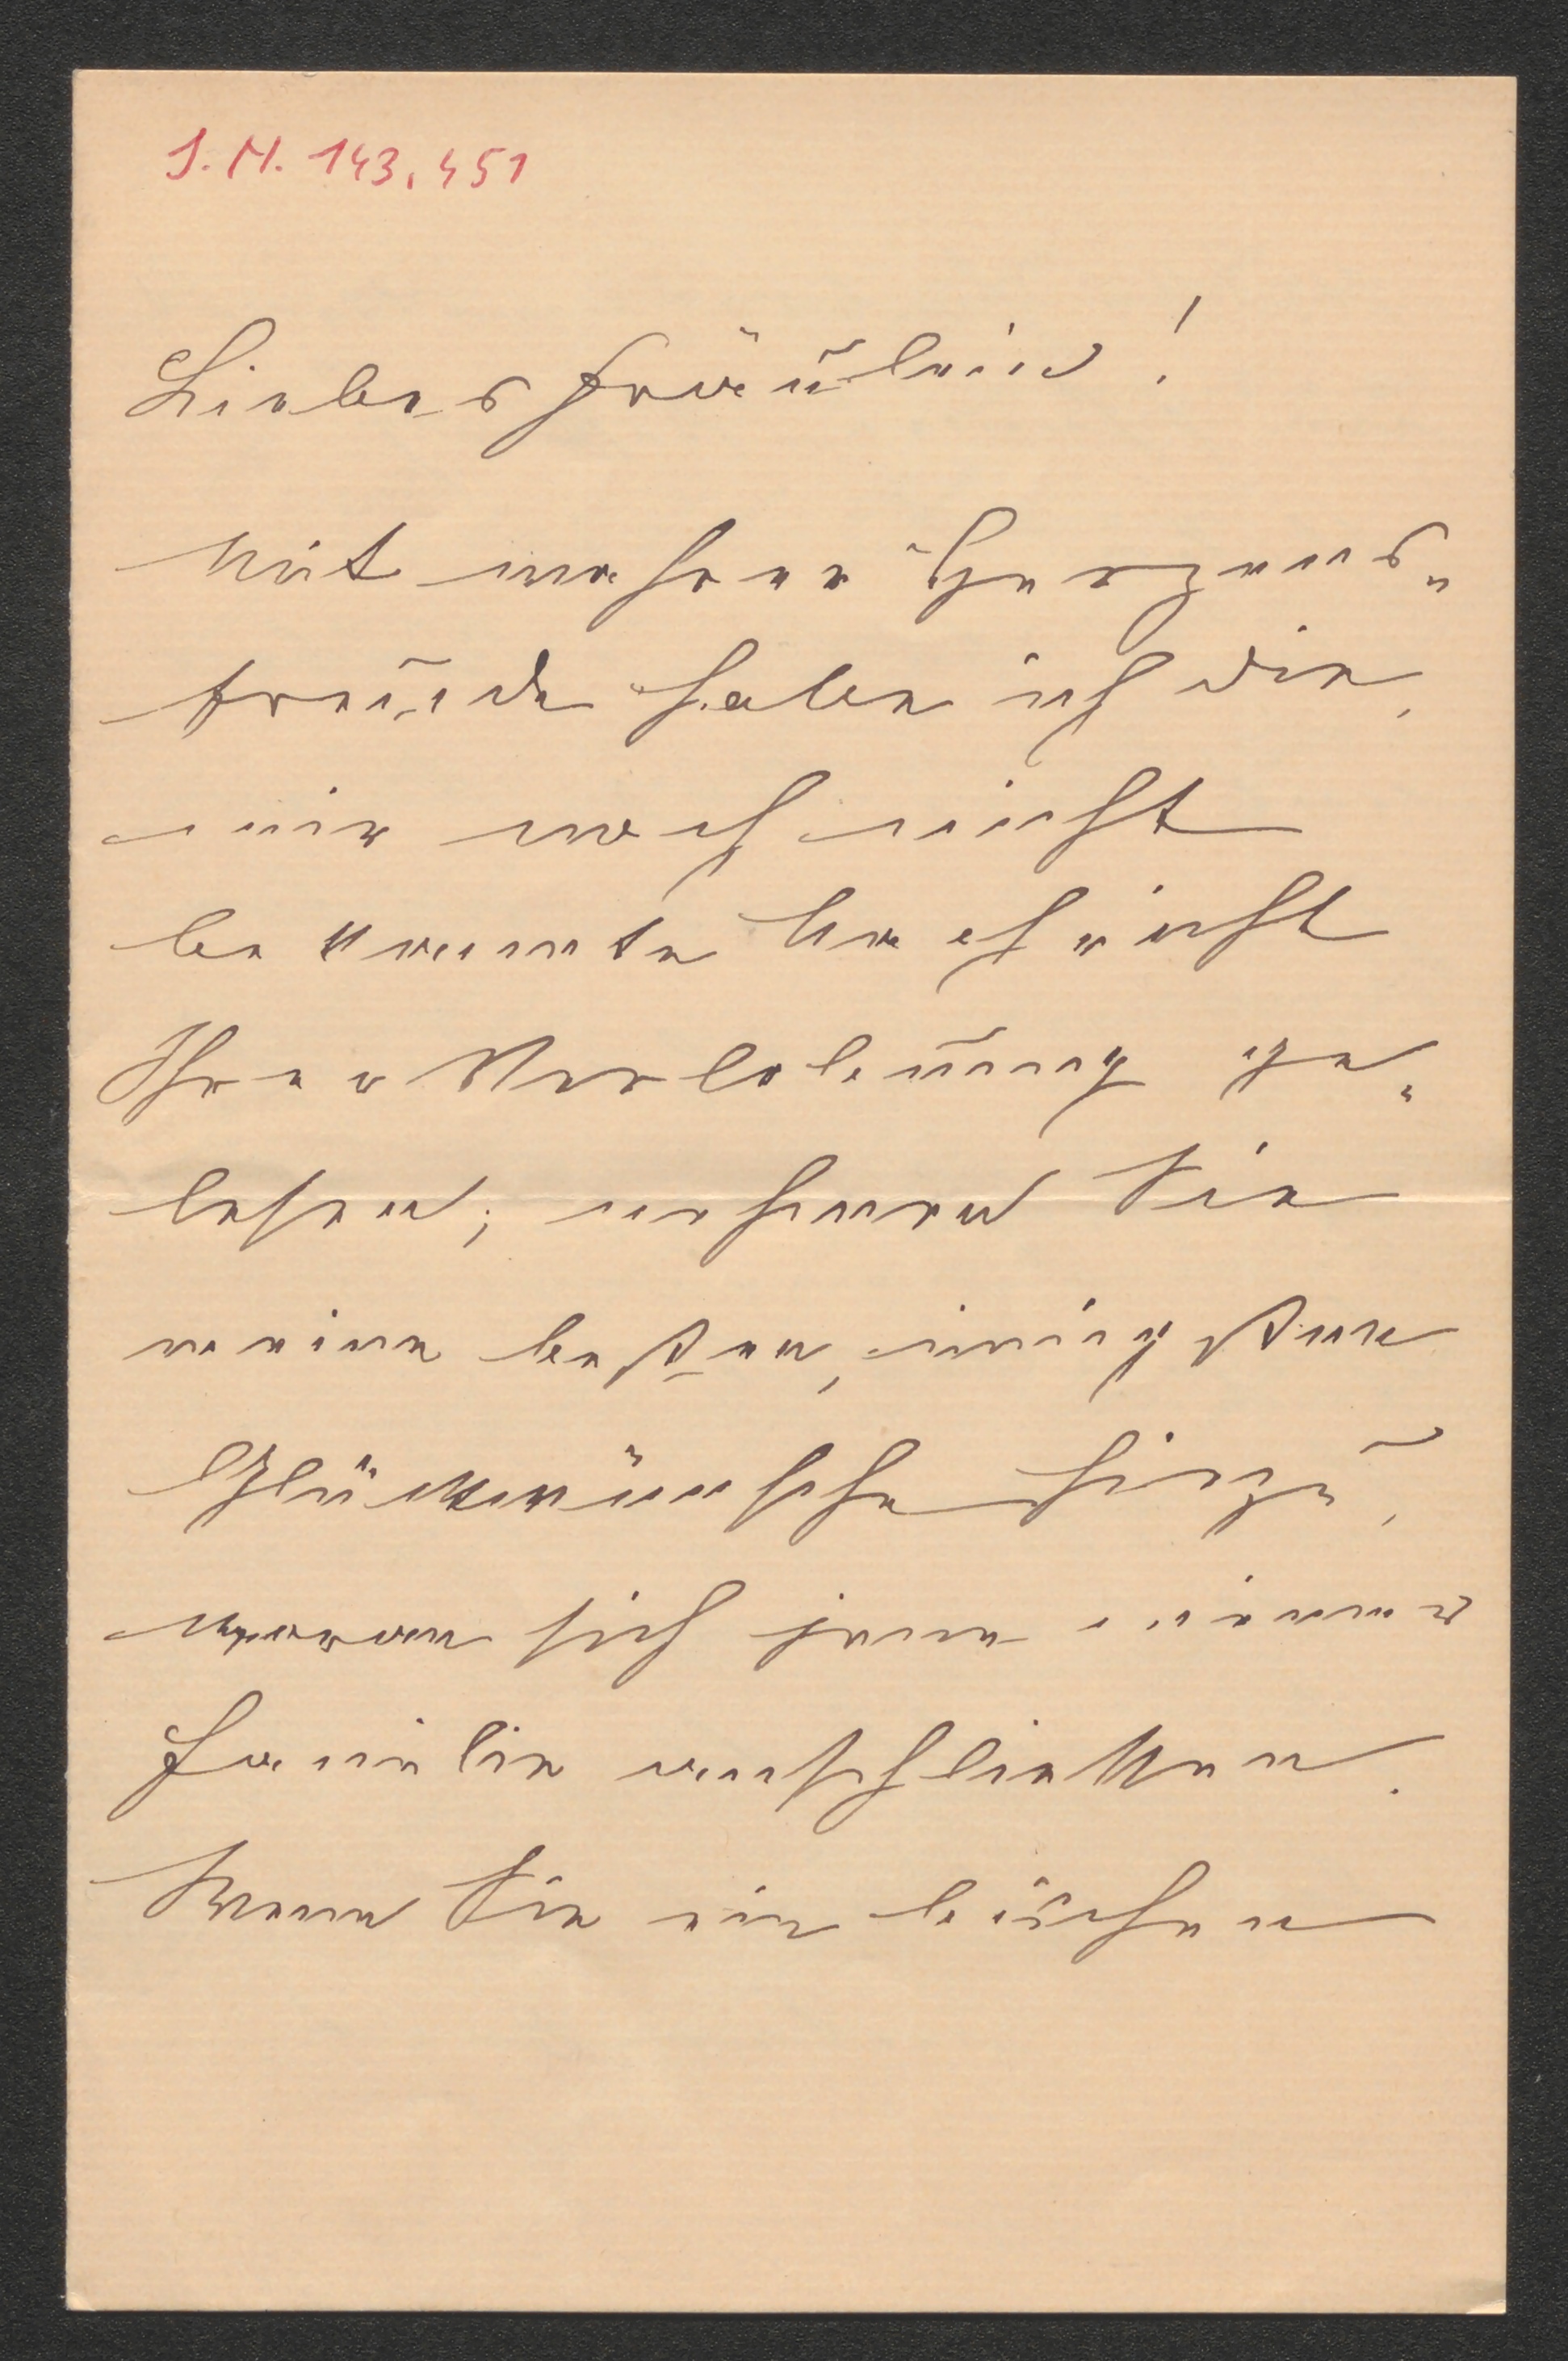 J.N. 143.451
Liebes Fräulein!
Mit wahrer Herzens-
freude habe ich die,
mir noch nicht
bekannte Nachricht
Ihrer Verlobung ge-
lesen; nehmen Sie
meine besten, innigsten
Glückwünsche hiezu,
woran sich jene meiner
Familie anschließen.
Wenn Sie ein bischen